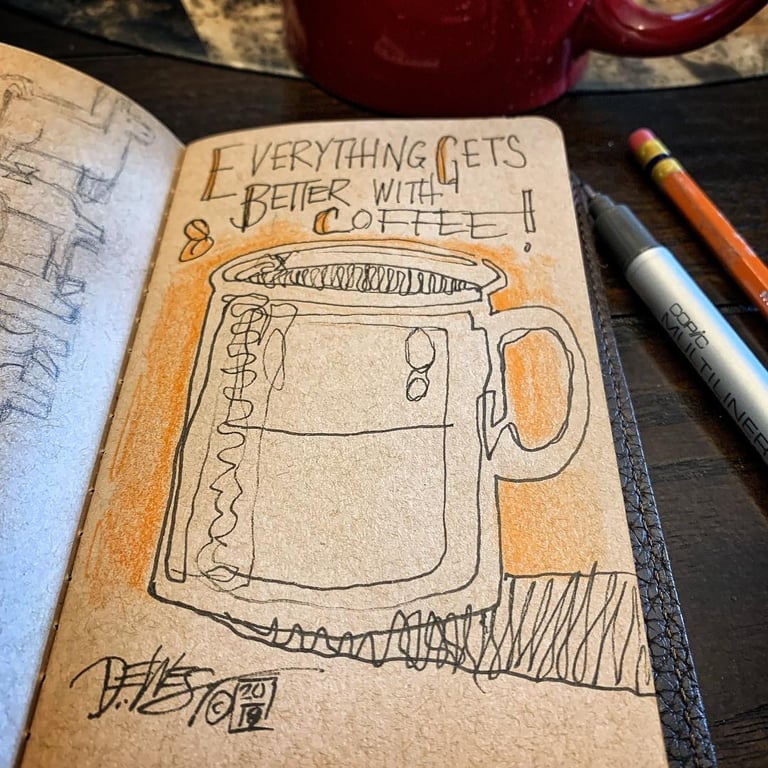 EVERYTHING GETS
BETTER WITH
COFFEE!
© 20
19
COPIC
MULTILINER